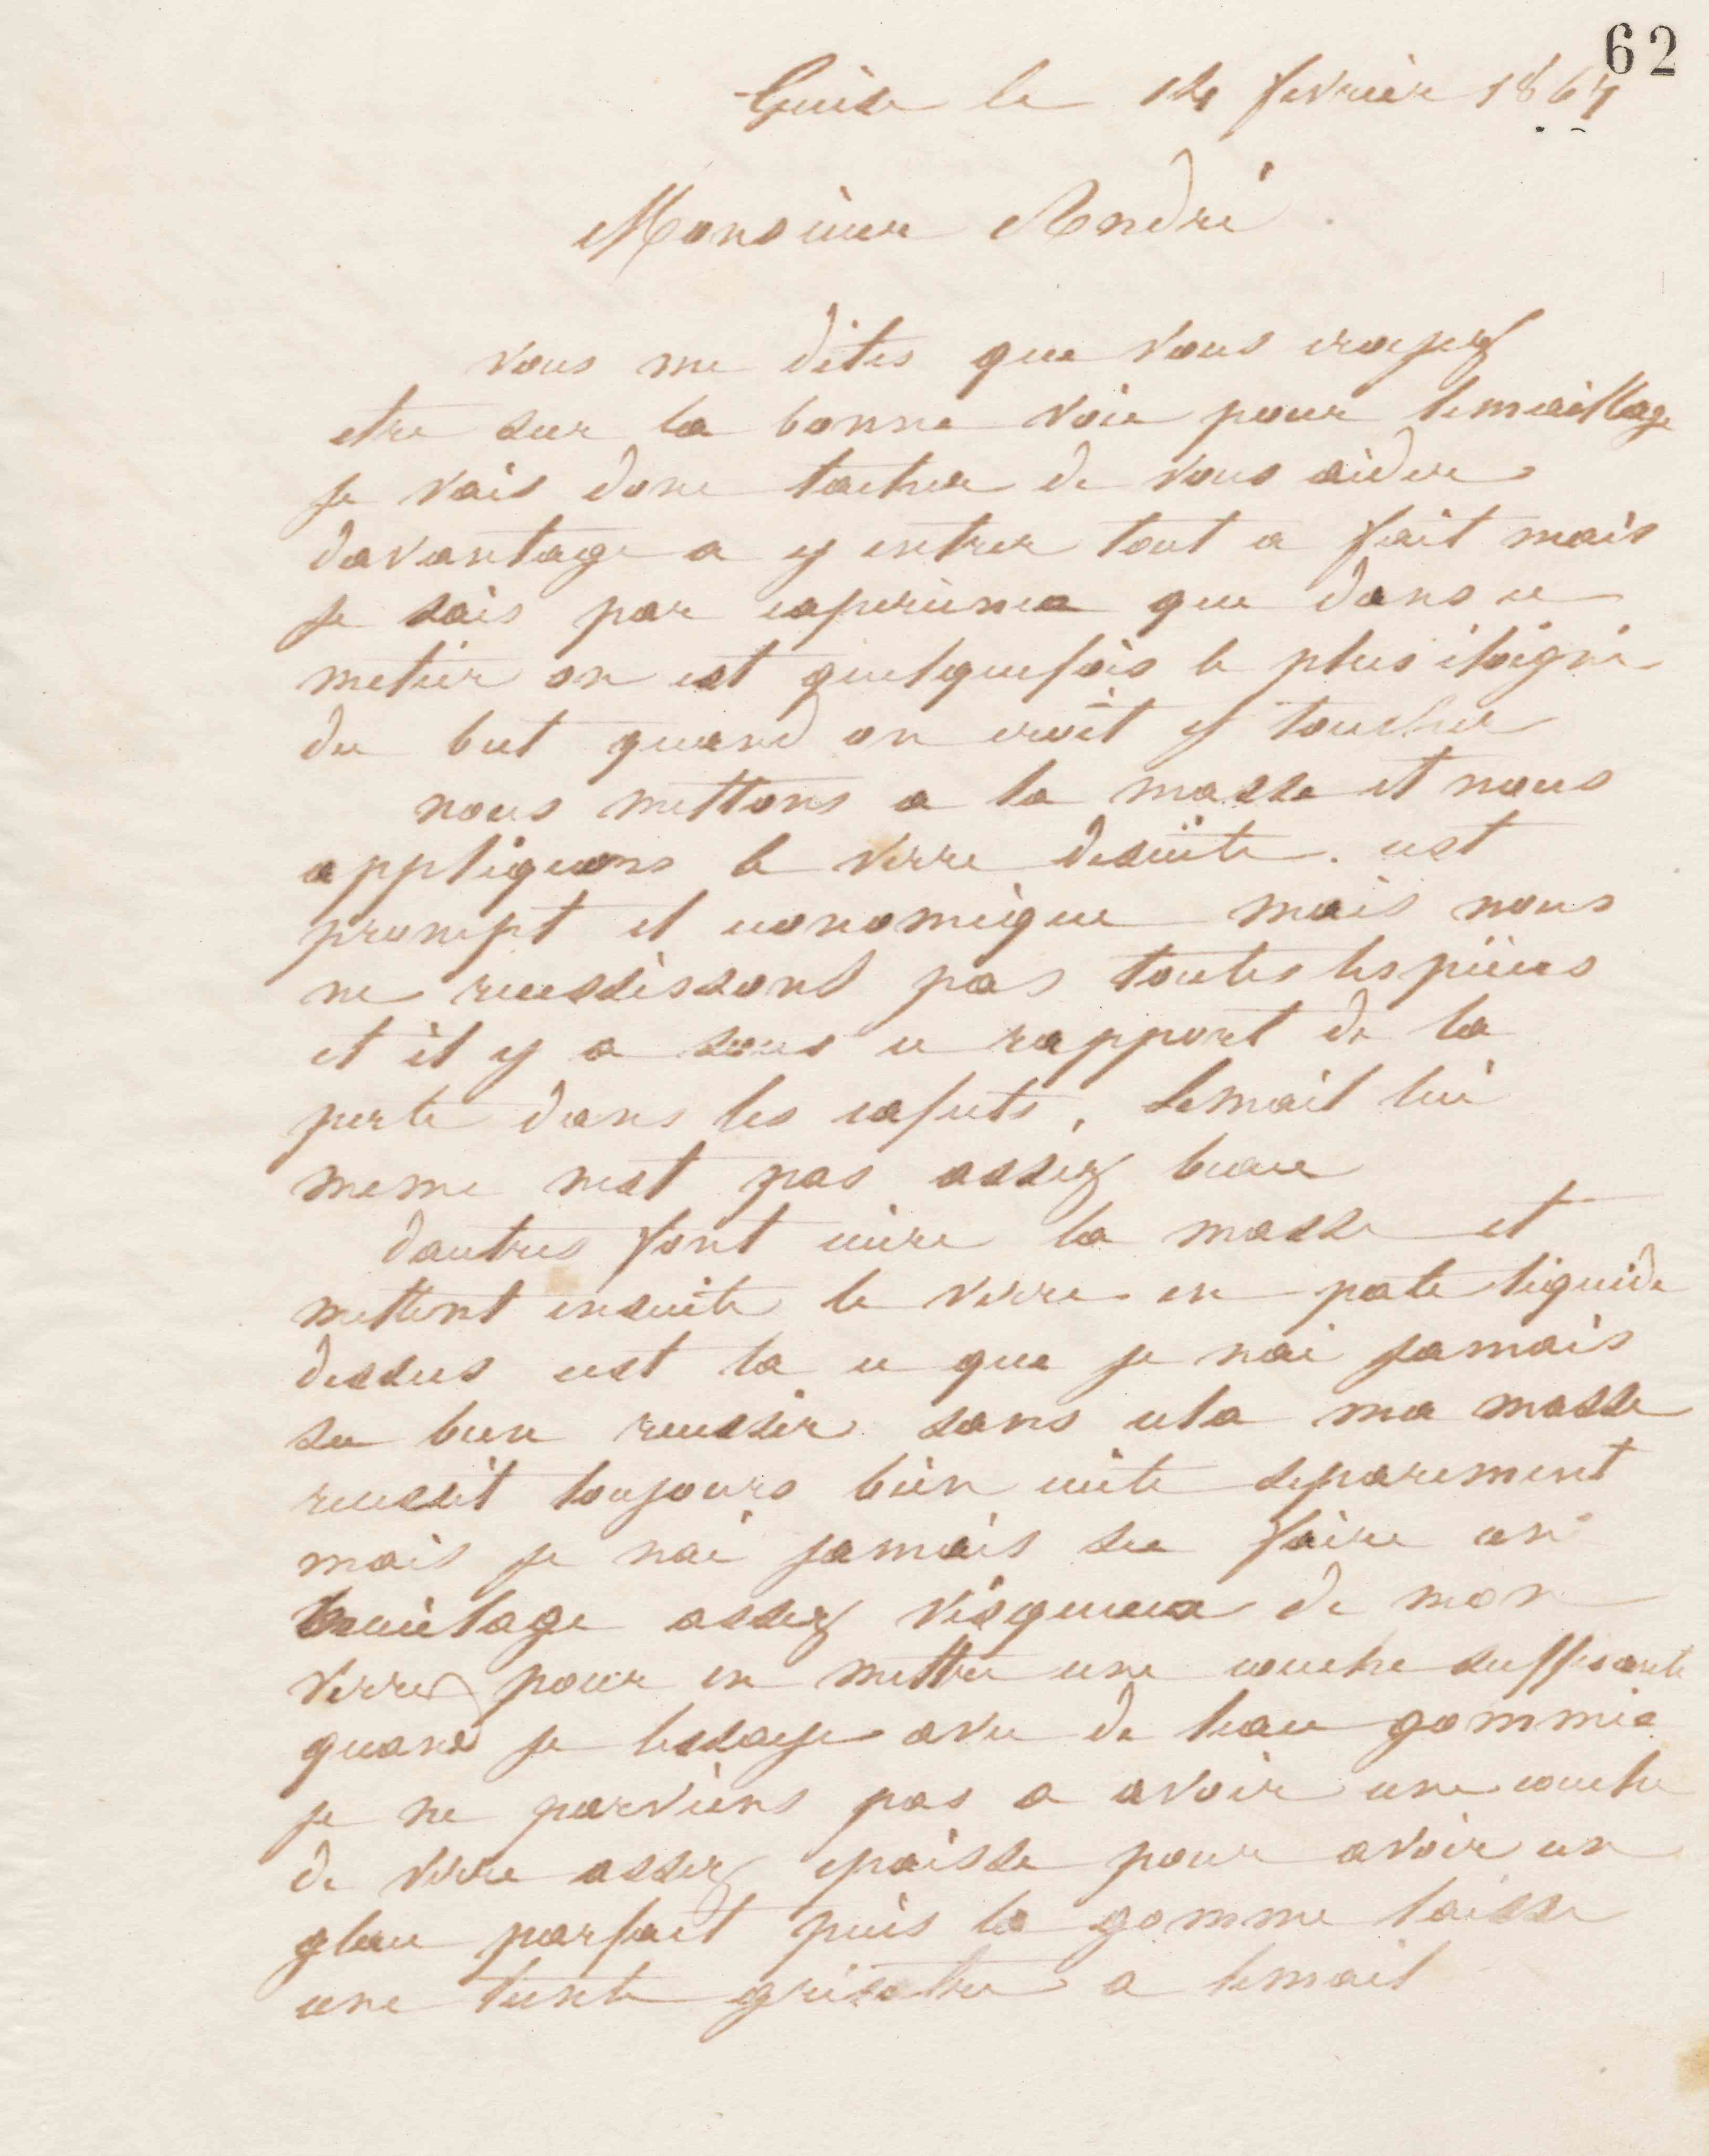 62
Guise le 14 fevrier 1864
Monsieur André
vous me dites que vous croyez
etre sur la bonne voie pour lemaillage
je vais donc tacher de vous aider
davantage a y entrer tout a fait mais
je sais par experience que dans ce
metier on est quelquefois le plus éloigné
du but quand on croit y toucher
nous mettons a la masse et nous
appliquons le verre desuite. cest
prompt et economique mais nous
ne reussissons pas toutes les pièces
et il y a sous ce rapport de la
perte dans les cassuts, Lemail lui
meme nest pas assez beau
dautres font cuire la masse et
mettent ensuite le verre en pate liquide
dessus cest la ce que je nai jamais
su bien reussir sans cela ma masse
reussit toujours bien cuite separement
mais je nai jamais su faire un
mucilage assez visqueux de mon
verre pour en mettre une couche suffisante
quand je lessaye avec de leau gommée
je ne parviens pas a avoir une couche
de verre assez epaisse pour avoir un
glacé parfait puis la gomme laisse
une teinte grisatre a lemail